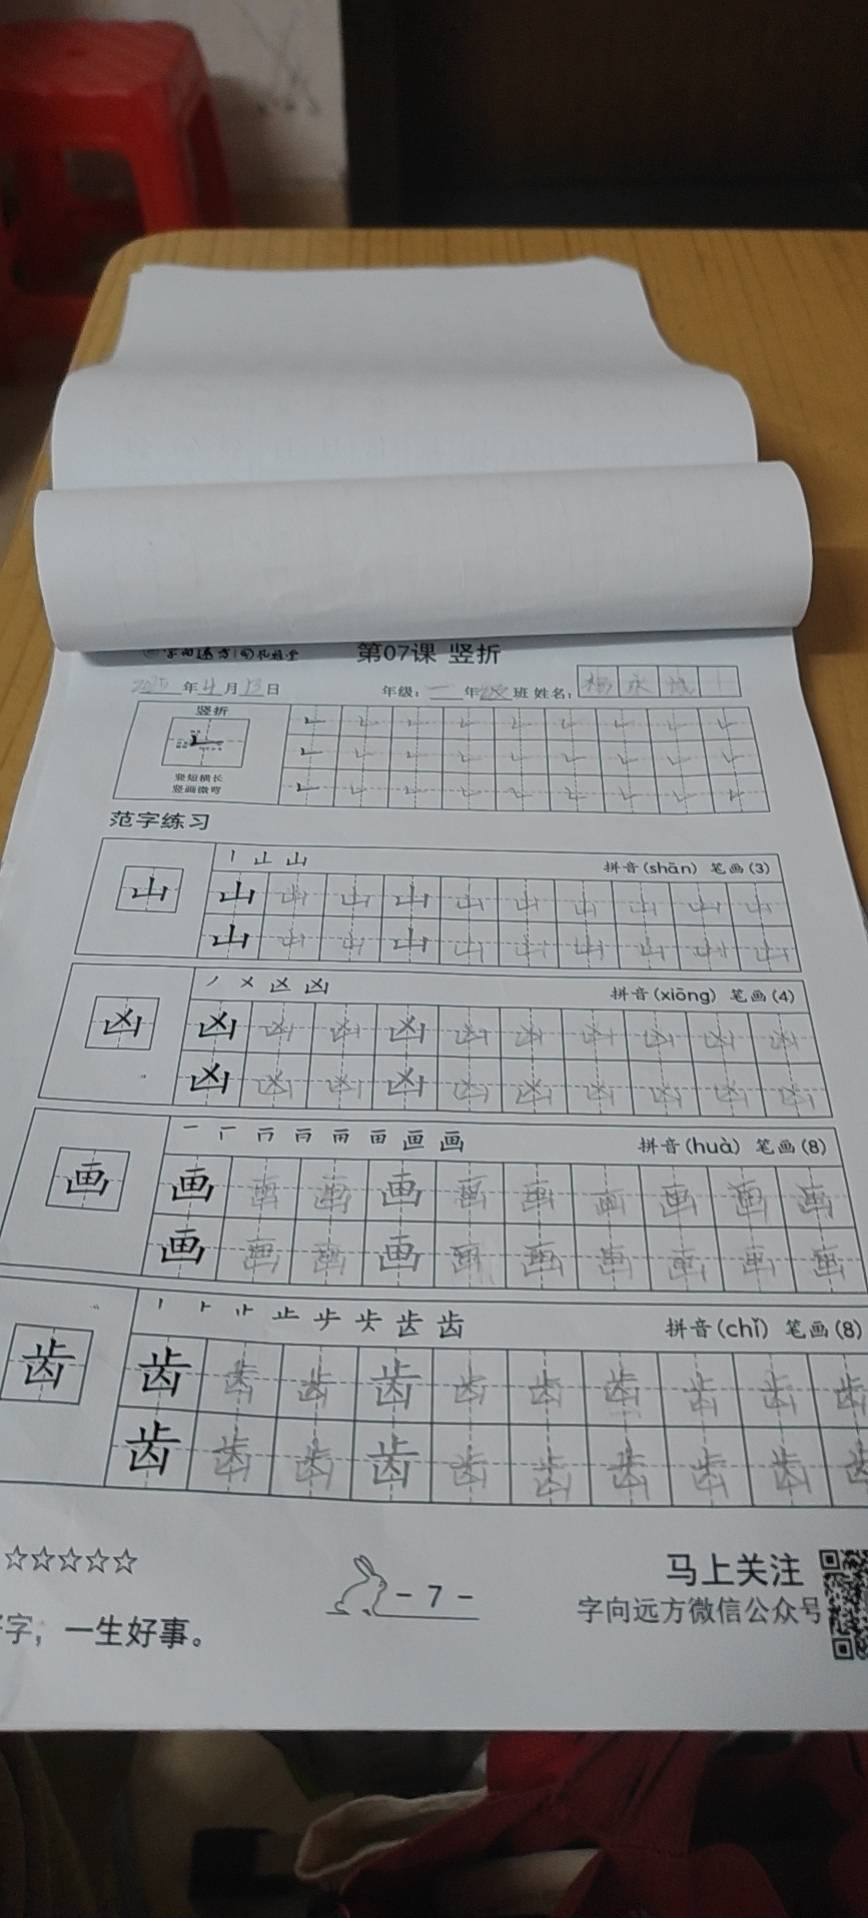 第07课 竖折
年4月13日 年级：一年 班 姓名：杨
竖折
竖短横长
竖画微弯
范字练习
丨 山 山 拼音(shān) 笔画(3)
山 山 山 山 山 山 山 山 山 山 山
山 山 山 山 山 山 山 山 山 山
丿 㐅 凶 凶 拼音(xiōng) 笔画(4)
凶 凶 凶 凶 凶 凶 凶 凶 凶 凶 凶
凶 凶 凶 凶 凶 凶 凶 凶 凶 凶
画 拼音(huà) 笔画(8)
画 画 画 画 画 画 画 画 画 画 画
画 画 画 画 画 画 画 画 画 画
止 齿 拼音(chǐ) 笔画(8)
齿 齿 齿 齿 齿 齿 齿 齿 齿 齿 齿
齿 齿 齿 齿 齿 齿 齿 齿 齿 齿
☆☆☆☆☆
- 7 -
马上关注
字向远方微信公众号
字，一生好事。